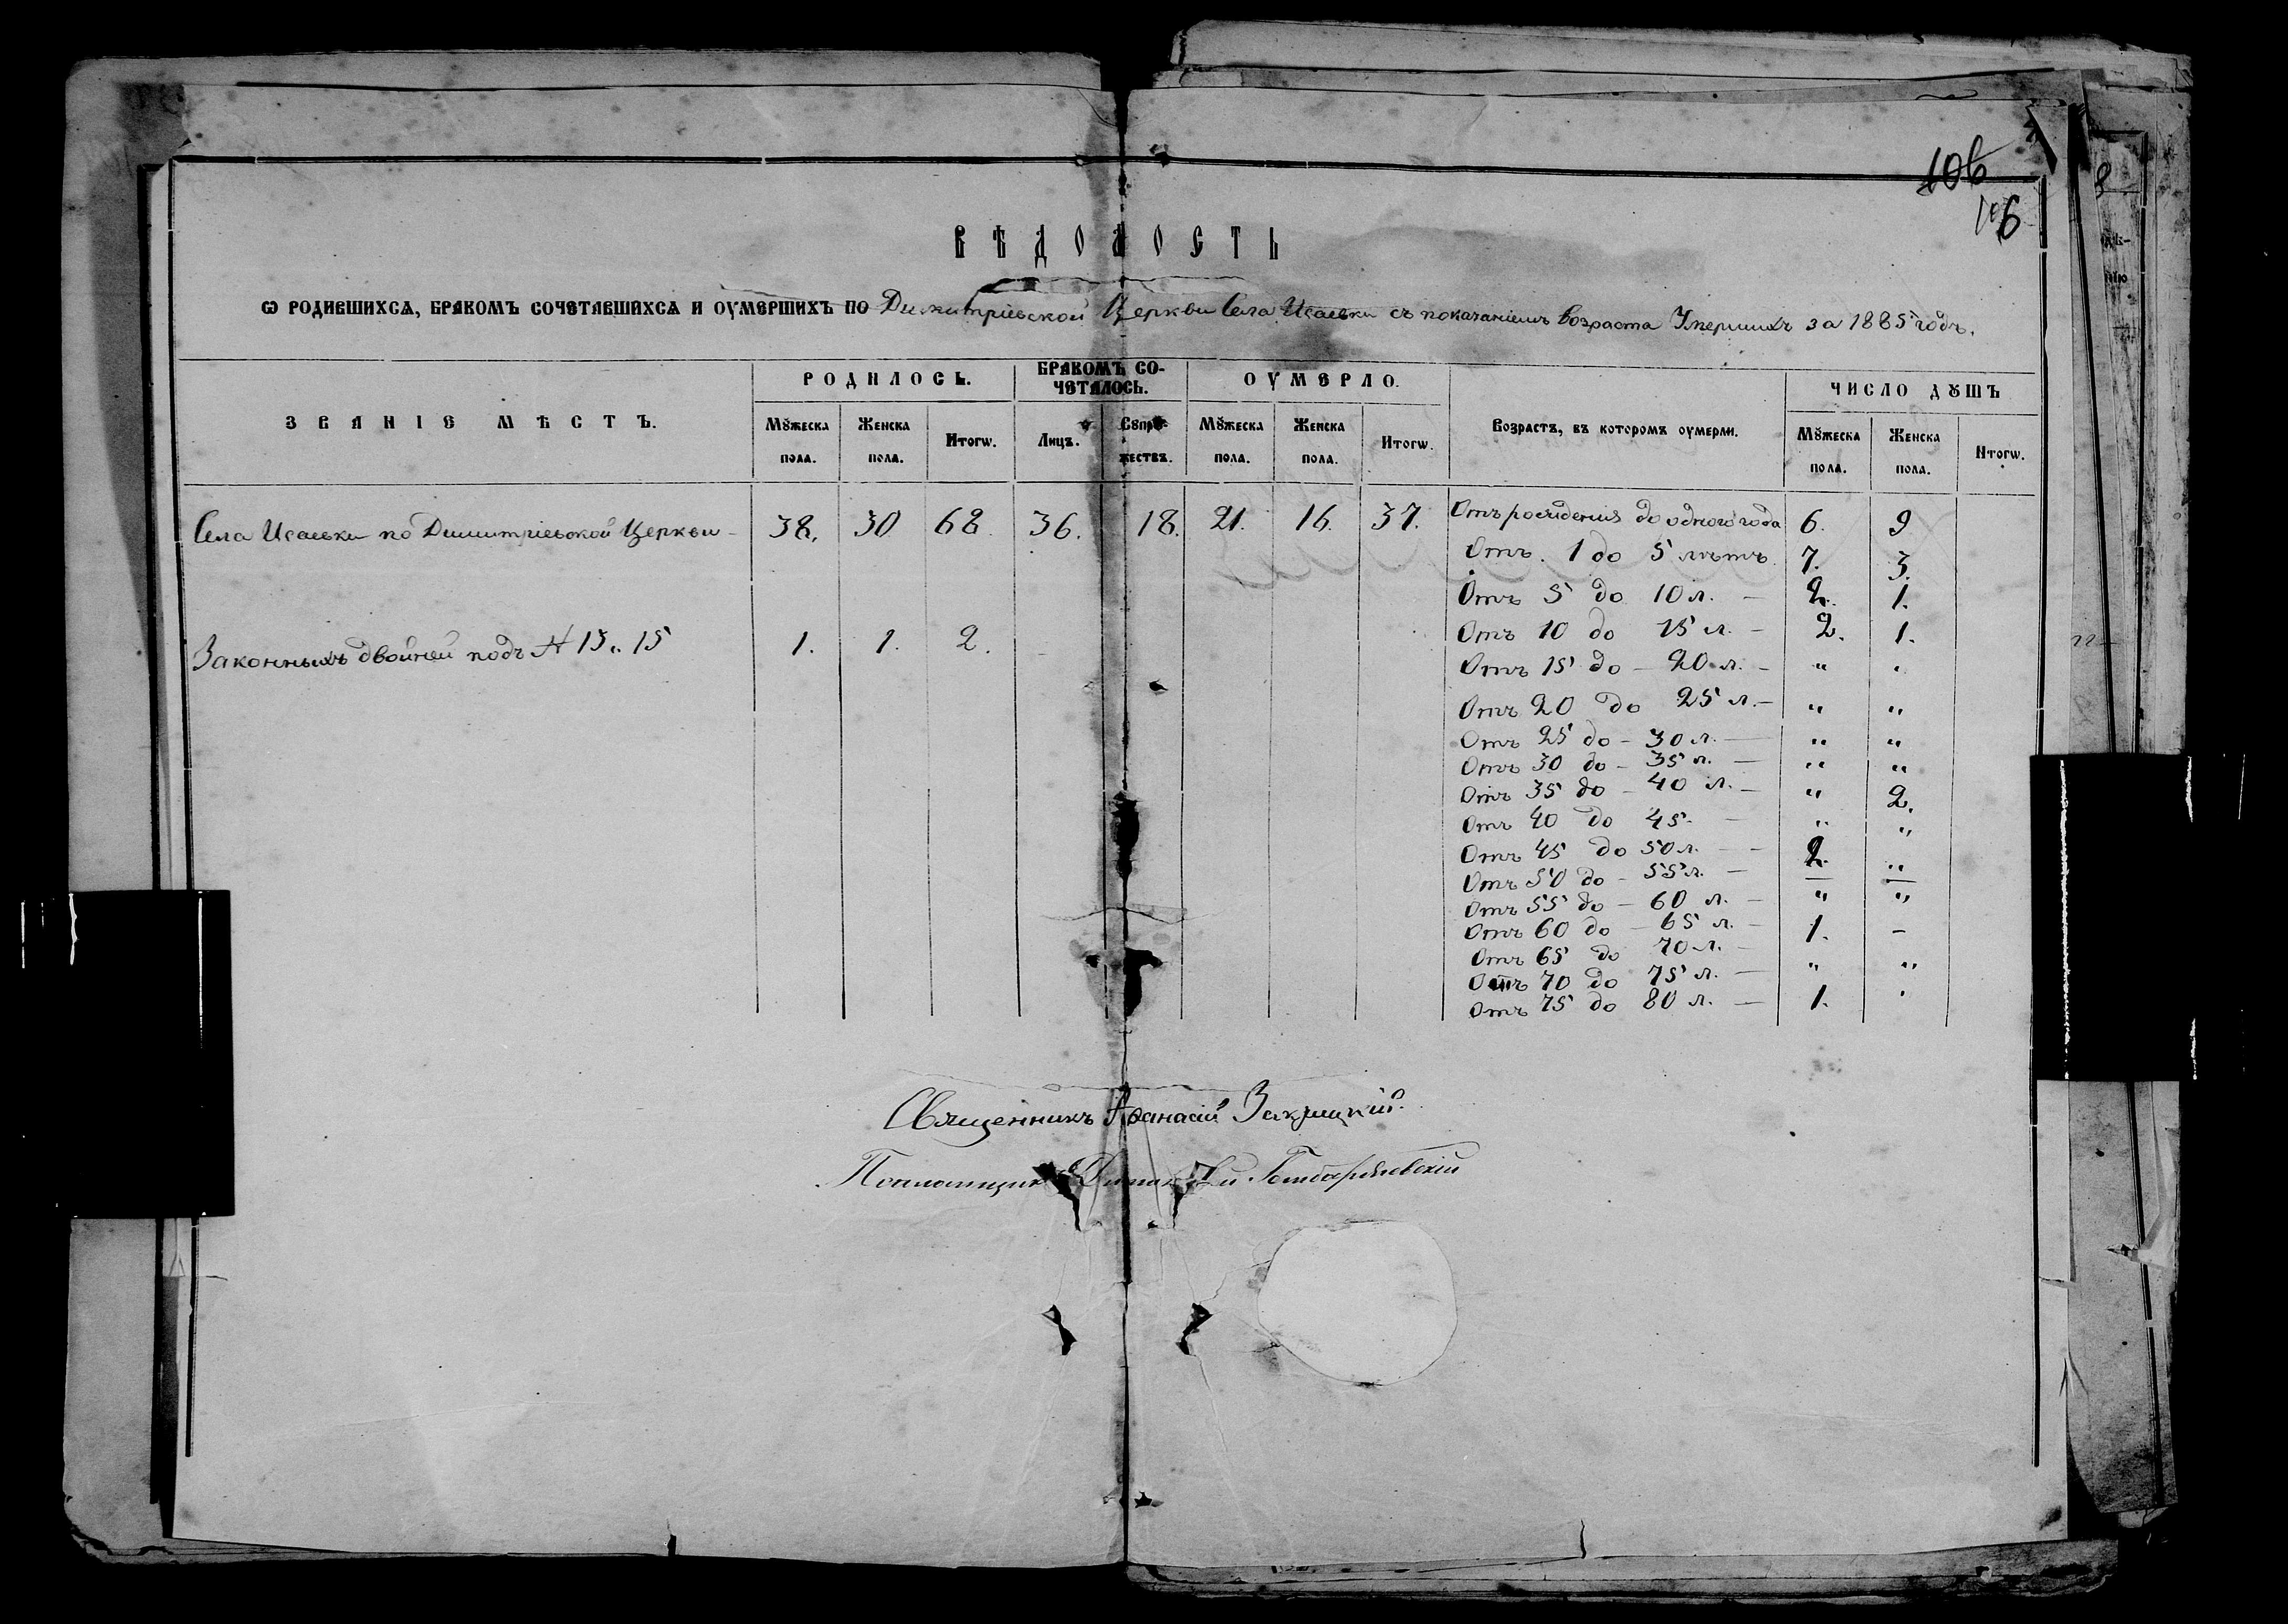 106
106
ВѢДОМОСТЬ
Ѡ РОДИВШИХСѦ, БРАКОМЪ СОЧЕТАВШИХСѦ И ОУМЕРШИХЪ ПО Димитріевской Церкви Села Исаевки съ показаніемъ возраста Умершихъ за 1885 годъ.
ЗВАНІЕ МѢСТЪ.
РОДИЛОСЬ.
БРАКОМЪ СО-
ЧЕТАЛОСЬ.
ОУМЕРЛО.
Возрастъ, въ которомъ оумерли.
ЧИСЛО ДꙊШЪ
Мꙋжеска пола. Женска пола. Итогѡ. Лицъ. Сꙋпрꙋ-жествъ. Мꙋжеска пола. Женска пола. Итогѡ. Мꙋжеска пола. Женска пола. Итогѡ.
Села Исаевки по Димитріевской Церкви - 38. 30 68. 36. 18. 21. 16. 37. Отъ рожденія до одного года 6. 9
Отъ 1 до 5 лѣтъ 7. 3.
Отъ 5 до 10 л. — 2. 1.
Отъ 10 до 15 л. — 2. 1.
Законныхъ двойней подъ № 13 и 15 1. 1. 2.
Отъ 15 до - 20 л. — " "
Отъ 20 до 25 л. — " "
Отъ 25 до - 30 л. — " "
Отъ 30 до - 35 л. — " "
Отъ 35 до - 40 л. — " 2.
Отъ 40 до 45. — " "
Отъ 45 до 50 л. — 2. "
Отъ 50 до - 55 л. — — —
Отъ 55 до - 60 л. — " "
Отъ 60 до - 65 л. — 1. -
Отъ 65 до 70 л. —
Отъ 70 до 75 л. — " "
Отъ 75 до 80 л. — 1. "
Священникъ Афанасій